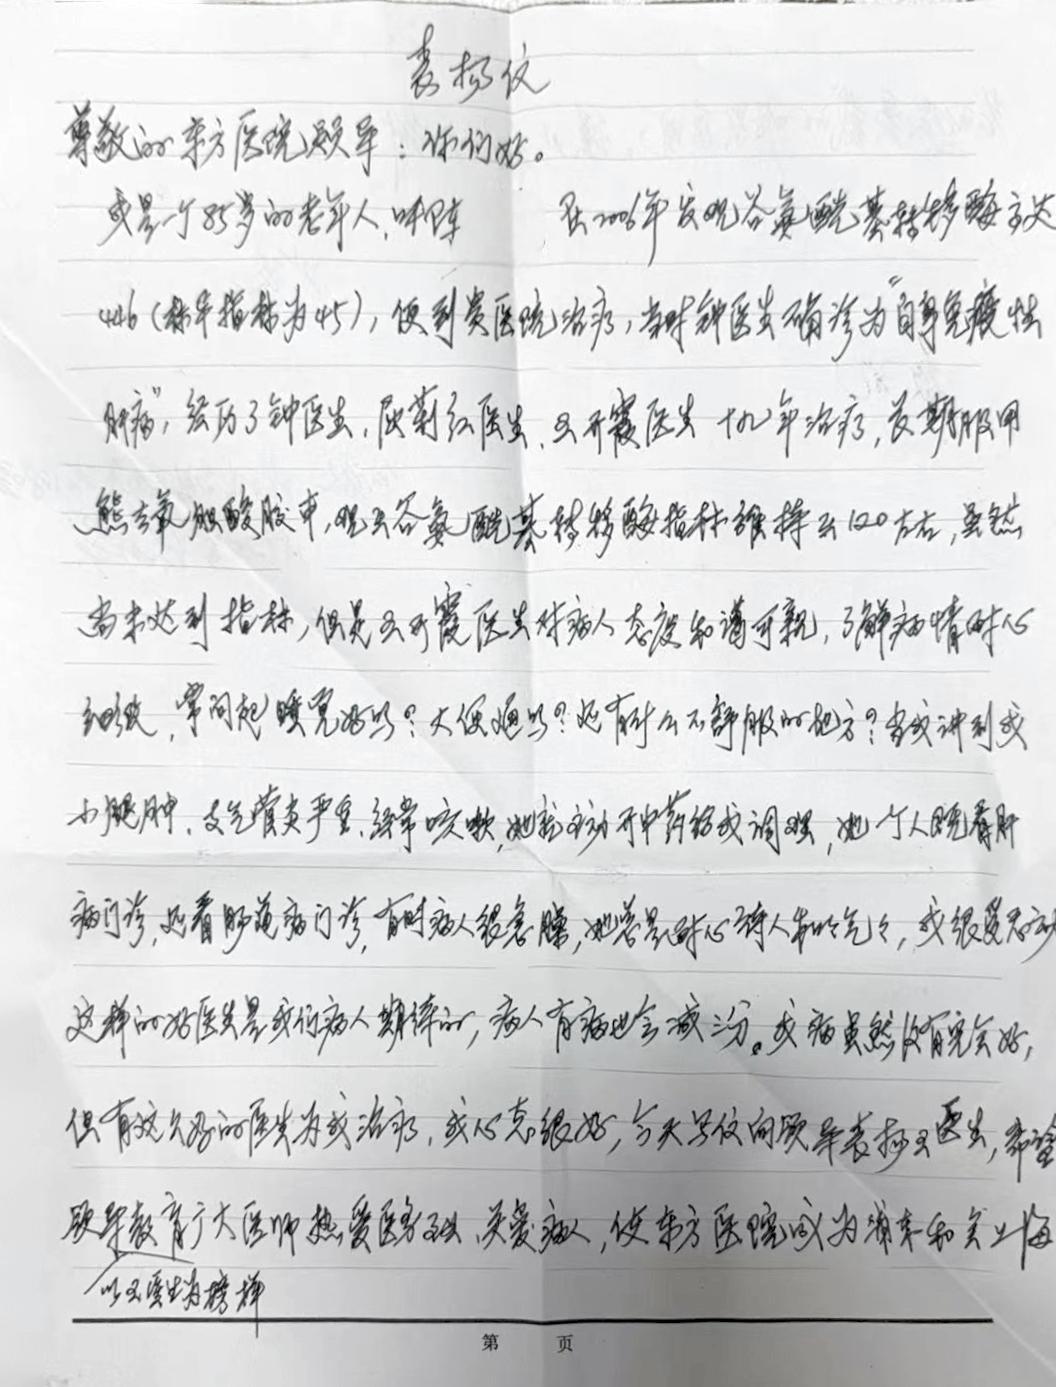 表扬信
尊敬的东方医院领导：你们好。
我是一个85岁的老年人，叫陈 在2006年发现谷氨酰基转移酶高达
446（标准指标为45），便到贵医院治疗，当时钟医生确诊为“自身免疫性
肝病”，经历了钟医生，医生，王开霞医生十九年治疗，长期服用
熊去氧胆酸胶囊，现在谷氨酰基转移酶指标维持在120左右，虽然
尚未达到指标，但是王开霞医生对病人态度和谒可亲，了解病情耐心
细致，常问起睡觉好吗？大便通吗？还有什么不舒服的地方？当我讲到我
小腿肿，支气管炎严重，经常咳嗽，她就主动开中药给我调理，她一个人既看肝
病门诊，还看肠道病门诊，有时病人很急躁，她总是耐心待人和和气气，我很受感动
这样的好医生是我们病人期待的，病人有病也会减三分。我病虽然没有完全好，
但有这么好的医生为我治疗，我心态很好，今天写信向领导表扬王医生，希望
领导教育广大医师热爱医务，关爱病人，使东方医院成为浦东和全上海
以王医生为榜样
第 页